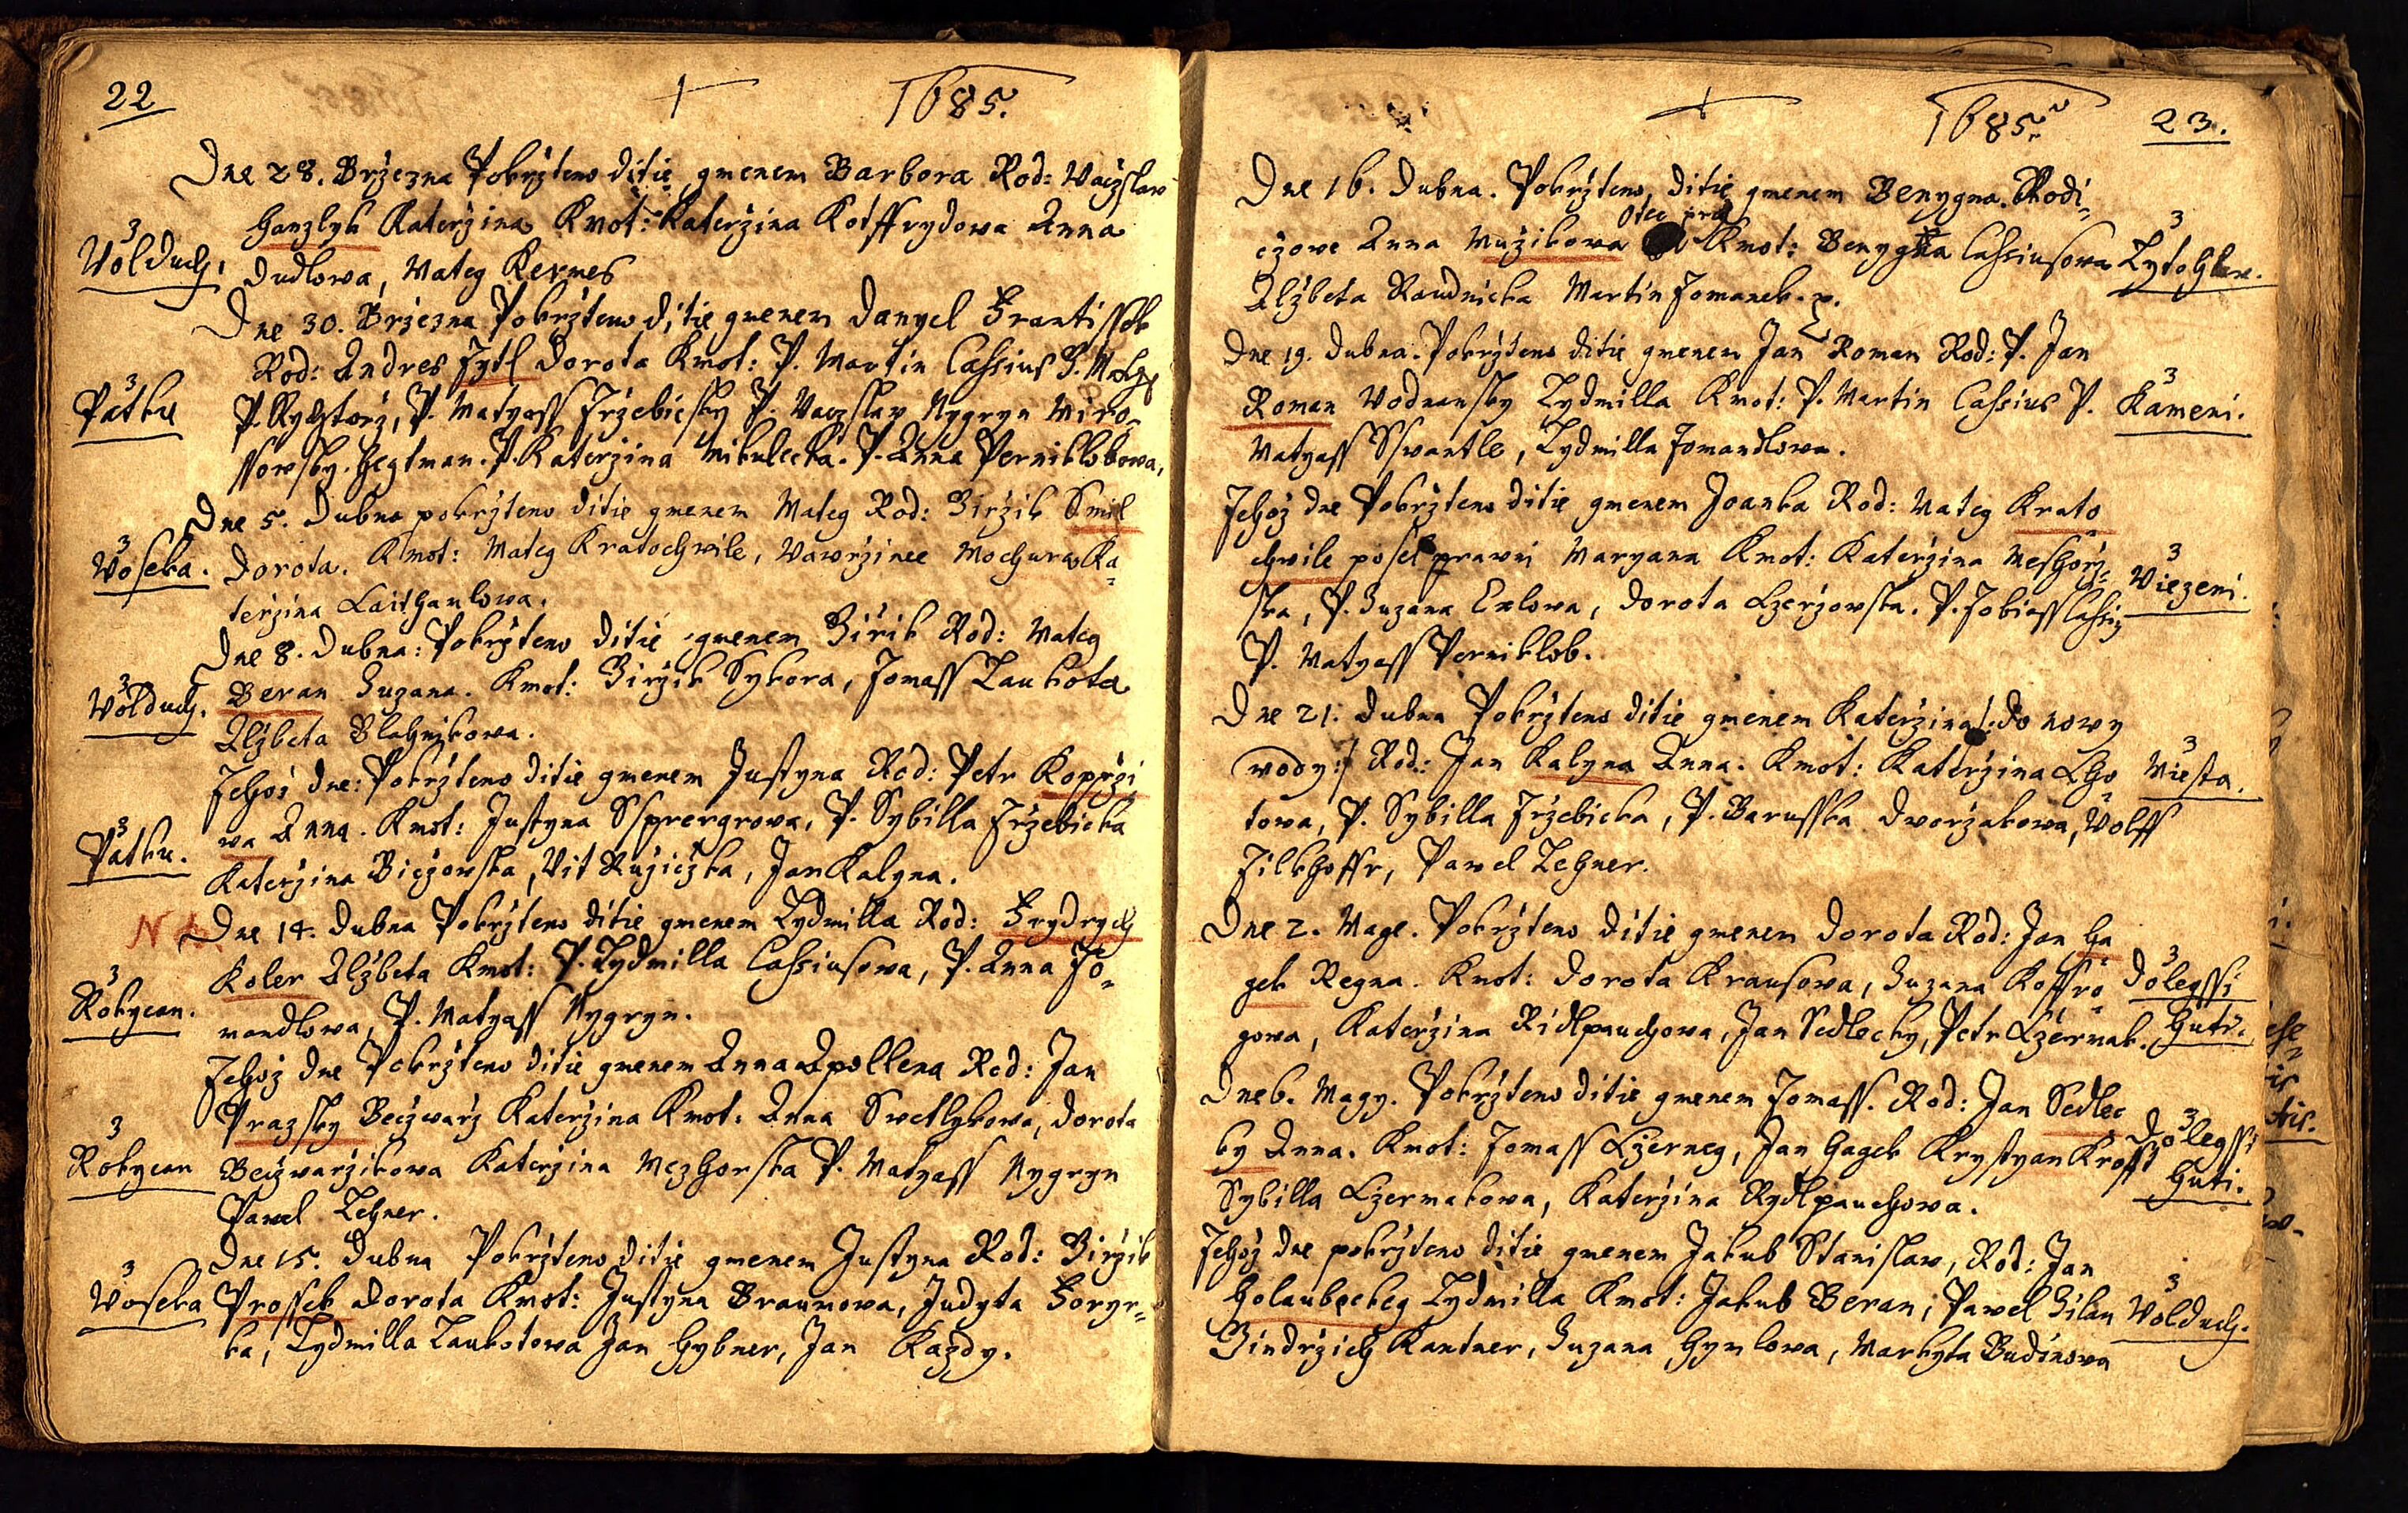 22 1685.
Dne 28. Brżezna Pokrżteno ditie gmenem Barbora Rod: Waczslaw
Hanzlyk Katerżina Kmot: Katerżina Kotffrydowa Anna
z Wolduch. Dudlowa, Mateg Kermes
Dne 30. Brżezna Pokrżteno ditie gmenem Danyel Frantissek
Rod: Andres Tytl Dorota Kmot: P. Martin Cassius
z Patku P. Rychtarż, P. Matyass Trżebicsky P. Waczslaw Nygryn Miro-
ssowsky. Hegtman. P. Katerżina Mikulecka. P. Anna Perniklobowa,
Dne 5. Dubna pokrżteno ditie gmenem Mateg Rod: Girżik Smil
z Woseka. Dorota. Kmot: Mateg Kratochwile, Wawrżinec Mochura Ka-
terżina Laithanlowa.
Dne 8. Dubna: Pokrżteno ditie gmenem Girżik Rod: Mateg
z Wolduch. Beran Zuzana. Kmot: Girżik Sykora, Tomass Laukota
Alżbeta Blahnikowa.
Tehoż dne: Pokrżteno ditie gmenem Justyna Rod: Petr Koprżi
wa Anna. Kmot: Justyna Ssprergrowa, P. Sybilla Trżebicka
z Patku. Katerżina Biczowska, Wit Rużiczka, Jan Kalyna.
Dne 14. Dubna Pokrżteno ditie gmenem Lydmilla Rod: Frydrych
Koler Alżbeta Kmot: P. Lydmilla Cassiusowa, P. Anna To-
z Rokycan. mandlowa, P. Matyass Nygryn.
Tehoż dne Pokrżteno ditie gmenem Anna Apollena Rod: Jan
Prazsky Beczwarż Katerżina Kmot: Anna Swetlykowa, Dorota
z Rokycan Beczwarżikowa Katerżina Mezhorska P. Matyass Nygryn
Pawel Lehner.
Dne 15. Dubna Pokrżteno ditie gmenem Justyna Rod: Girżik
z Woseka Prossek Dorota Kmot: Justyna Braunowa, Judyta Foryr-
ka, Lydmilla Laukotowa Jan Hybner, Jan Każdy.
1685. 23.
Dne 16. Dubna. Pokrżteno, ditie gmenem Benygna. Rodi-
Otec
czowe Anna Mużikowa Kmot: Benygna Cassiusowa z Lytohlaw.
Alżbeta Raudnicka Martin Tomanek.
Dne 19. Dubna. Pokrżteno ditie gmenem Jan Roman Rod: P. Jan
Roman Wodnansky Lydmilla Kmot: P. Martin Cassius P. z Kameni.
Matyass Sswantle, Lydmilla Tomandlowa.
Tehoż dne Pokrżteno ditie gmenem Joanka Rod: Mateg Krato
chwile posel prawni Maryana Kmot: Katerżina Meshorż-
ska, P. Zuzana Exlowa, Dorota Czerżowska. P. Tobiass z Wiezeni.
P. Matyass Perniklob.
Dne 21. Dubna Pokrżteno ditie gmenem Katerżina /: do nowy
wody :/ Rod: Jan Kalyna Anna. Kmot: Katerżina Lho z Miesta.
towa, P. Sybilla Trżebicka, P. Barusska Dworżakowa, Wolff
Tilkhoffr, Pawel Lehner.
Dne 2. Mage. Pokrżteno ditie gmenem Dorota Rod: Jan Ha
gek Regna. Kmot: Dorota Krausowa, Zuzana Koffro z Dolegssi
gowa, Katerżina Ridlpauchowa, Jan Sedlecky, Petr Czermak. Huti.
Dne 6. Magy. Pokrżteno ditie gmenem Tomass. Rod: Jan Sedlec
ky Anna. Kmot: Tomass Czerneg, Jan Hagek Krystyan Krosst z Dolegssi
Sybilla Czermakowa, Katerżina Rydlpauchowa. Huti.
Tehoż dne pokrżteno ditie gmenem Jakub Stanislaw, Rod: Jan
Holaubeckeg Lydmilla Kmot: Jakub Beran, Pawel Bilan z Wolduch.
Gindrżich Kantner, Zuzana Hymlowa, Markyta Budinowa